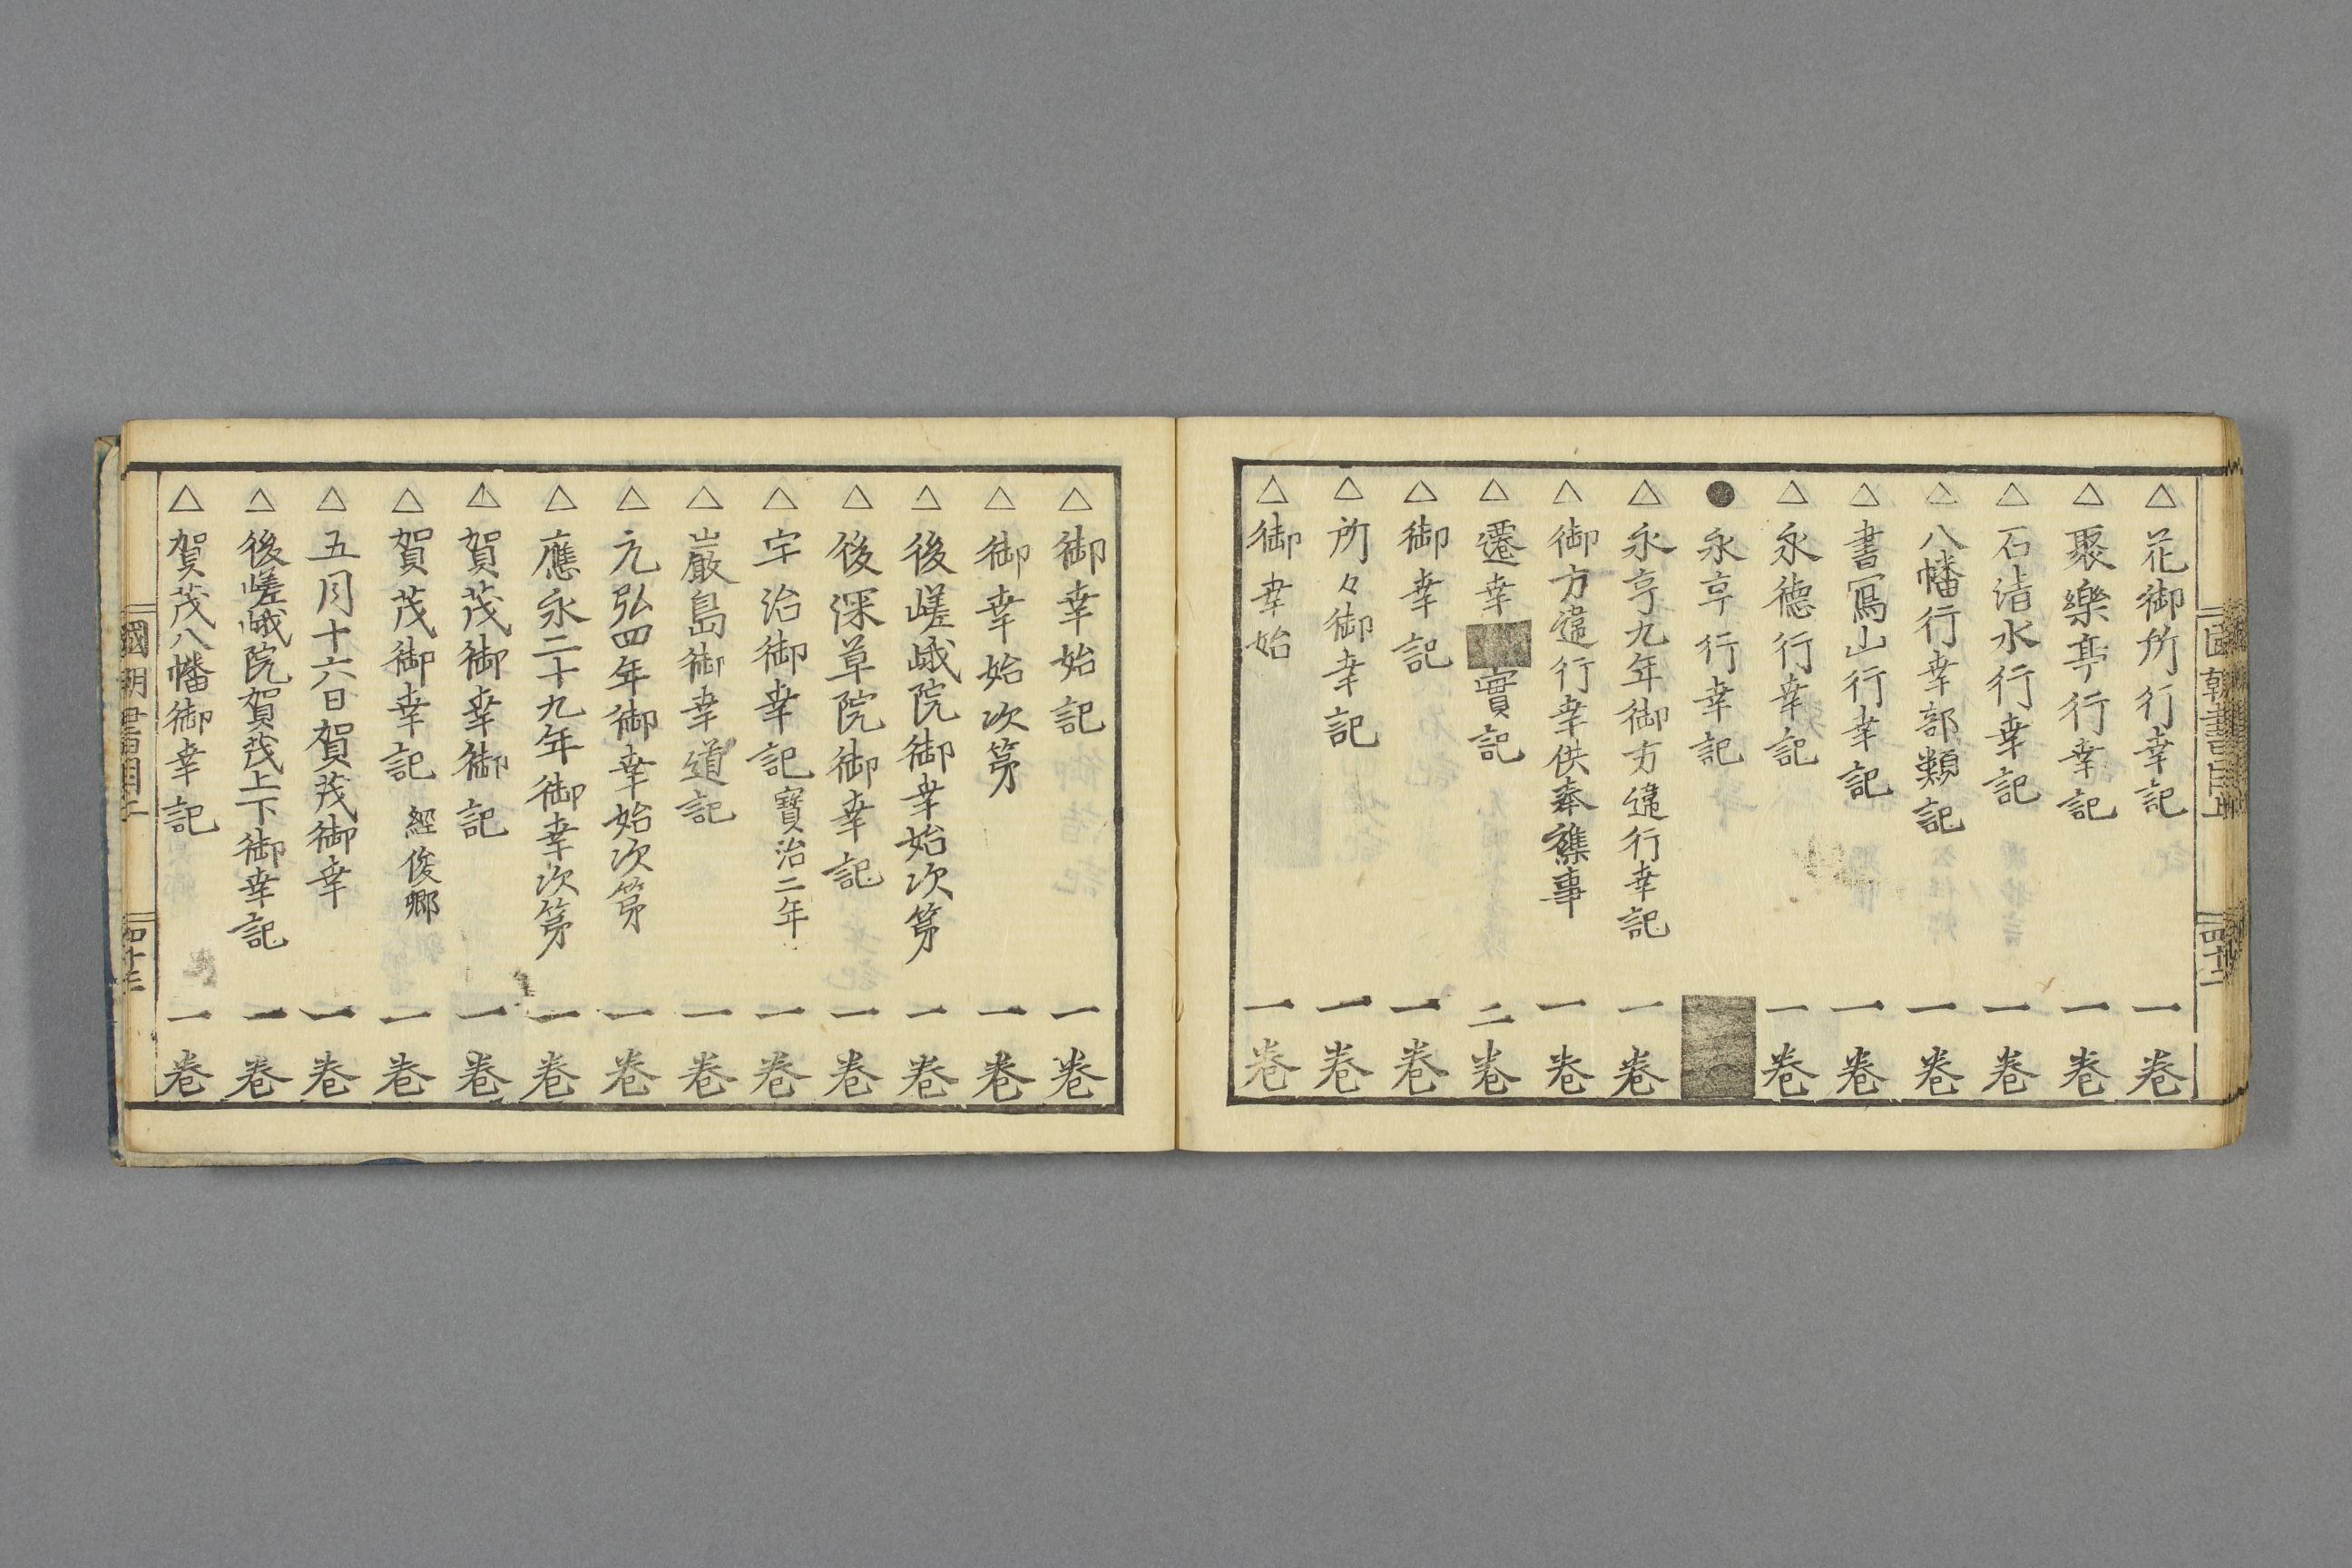 △花御所行幸記 一卷
△聚樂亭行幸記 一卷
△石清水行幸記 一卷
△八幡行幸部類記 一卷
△書寫山行幸記 一卷
△永德行幸記 一卷
●永享行幸記
△永享九年御方違行幸記 一卷
△御方違行幸供奉襍事 一卷
△遷幸 實記 二卷
△御幸記 一卷
△所々御幸記 一卷
△御幸始 一卷
△御幸始記 一卷
△御幸始次第 一卷
△後嵯峨院御幸始次第 一卷
△後深草院御幸記 一卷
△宇治御幸記 寶治二年 一卷
△巖島御幸道記 一卷
△元弘四年御幸始次第 一卷
△應永二十九年御幸次第 一卷
△賀茂御幸御記 一卷
△賀茂御幸記 經俊卿 一卷
△五月十六日賀茂御幸 一卷
△後嵯峨院賀茂上下御幸記 一卷
△賀茂八幡御幸記 一卷